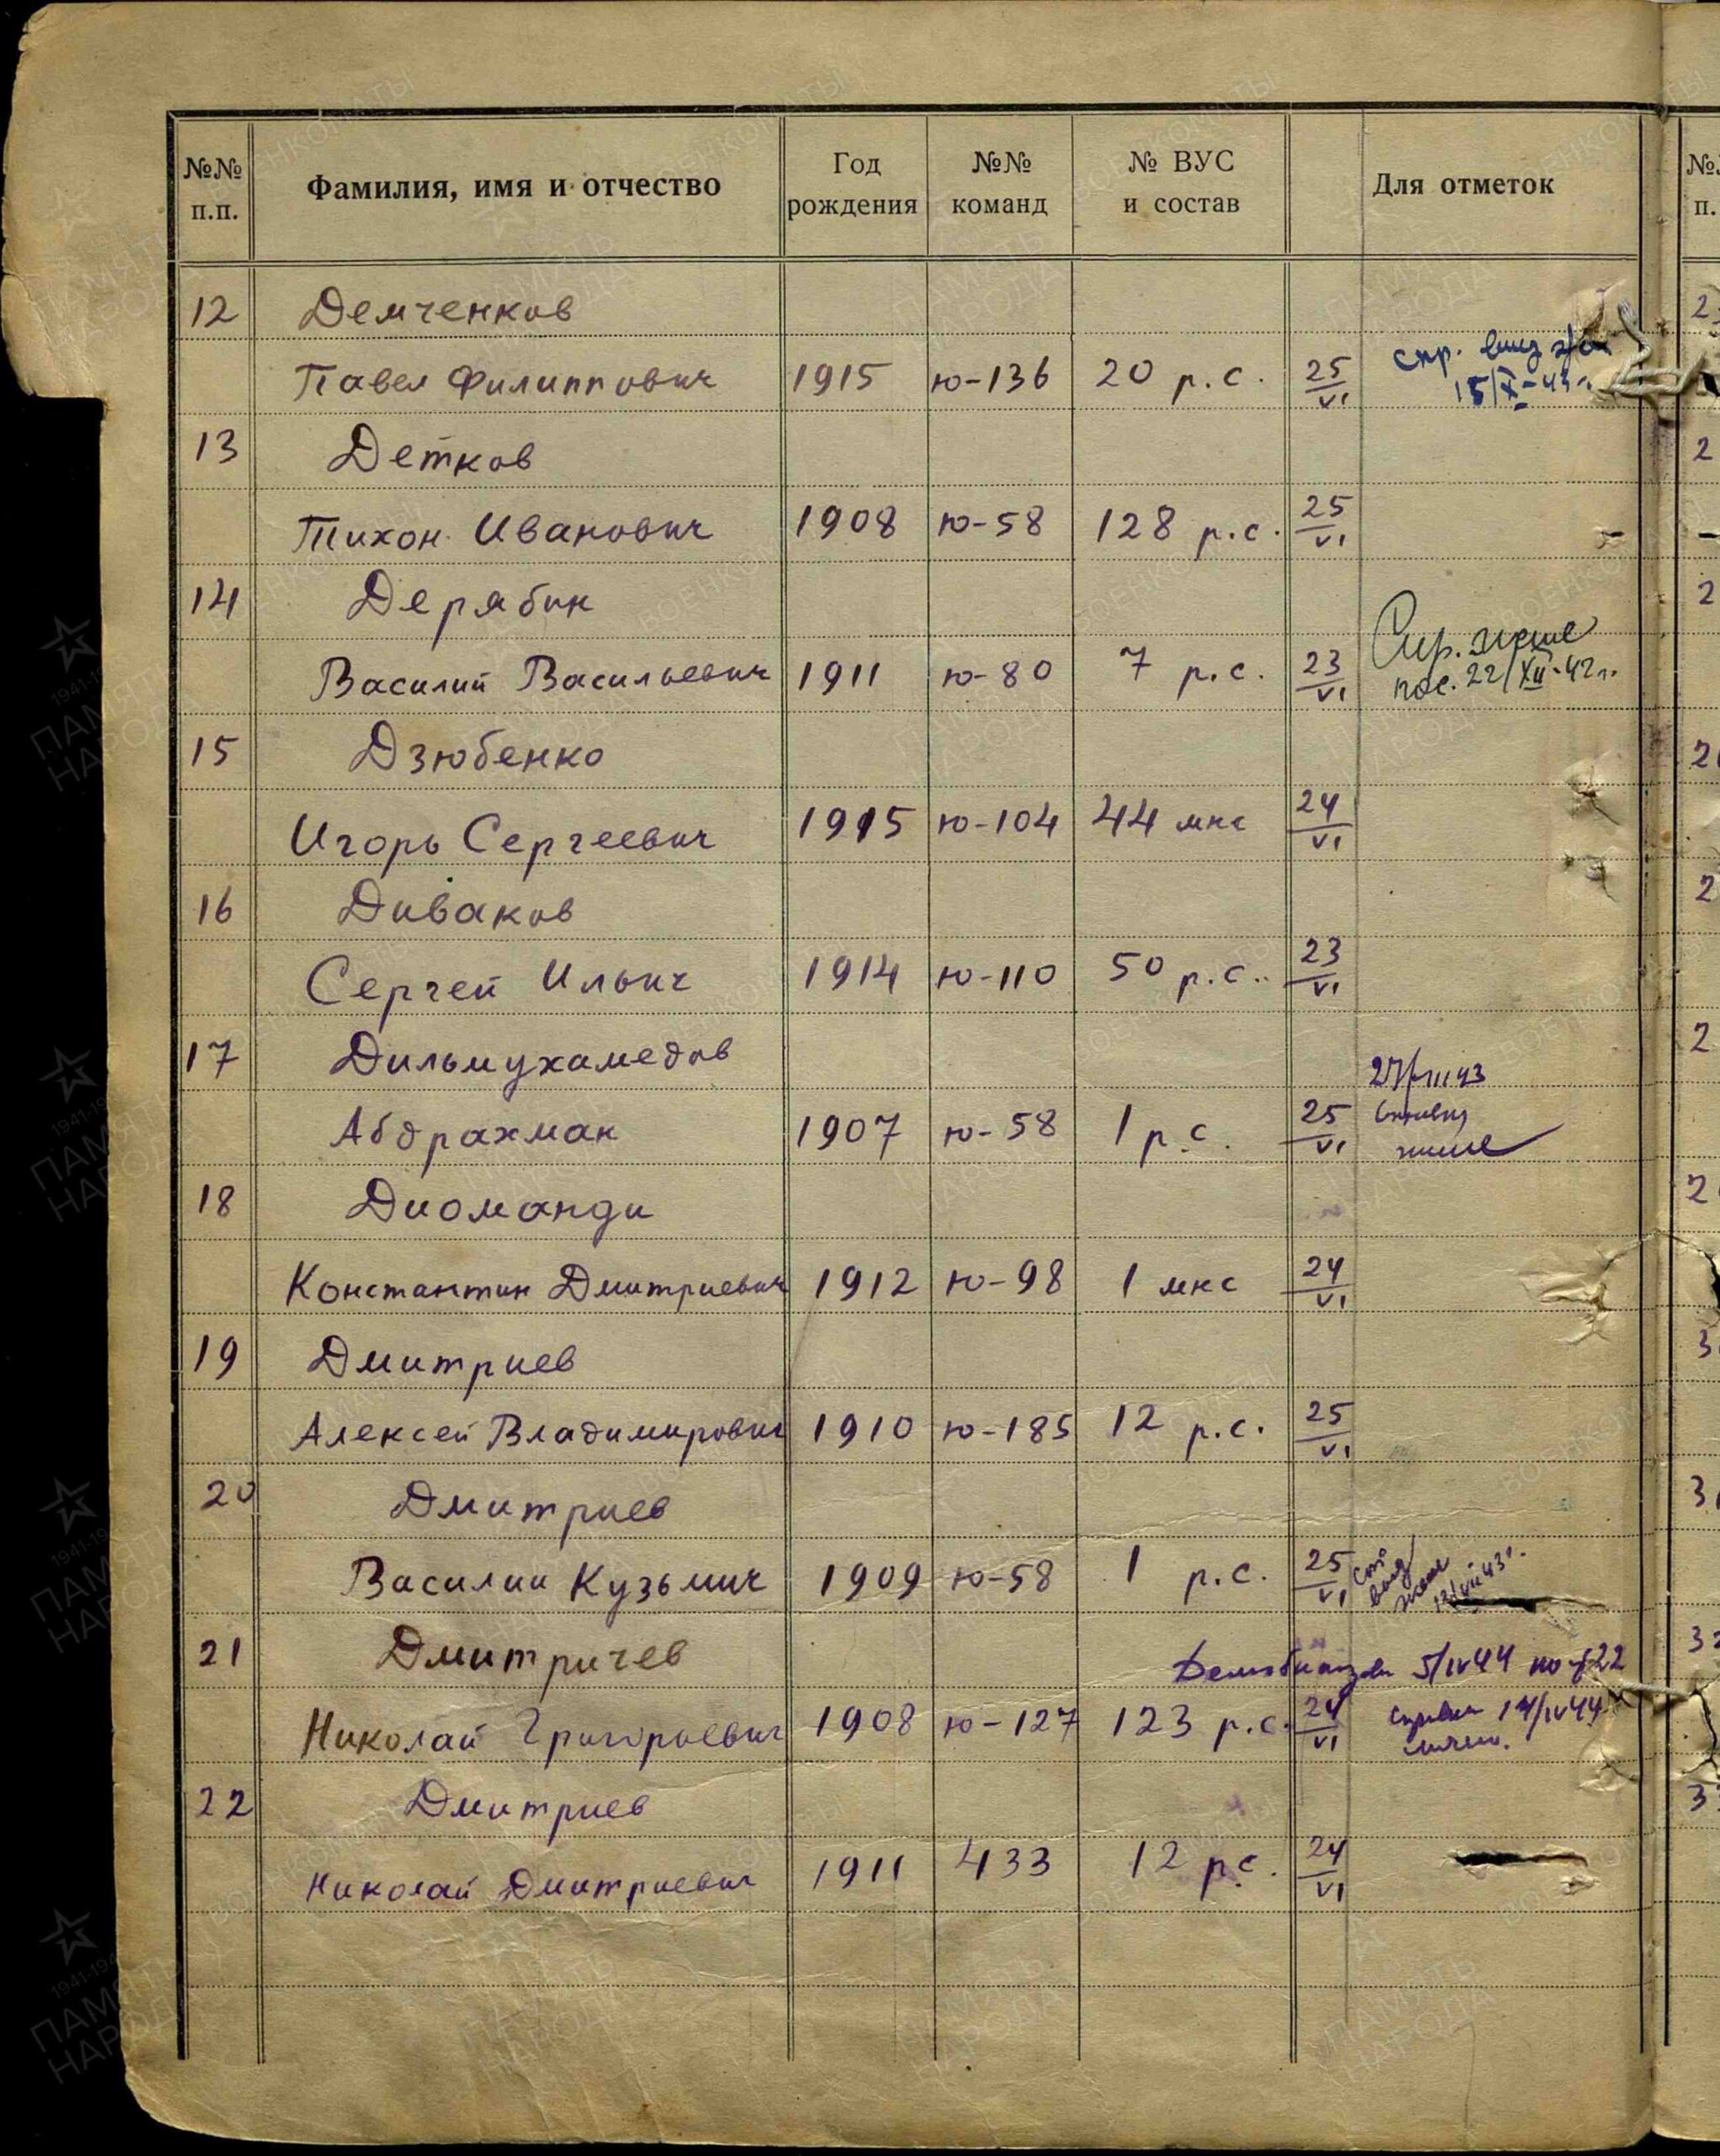 №№ п.п. Фамилия, имя и отчество Год рождения №№ команд № ВУС и состав Для отметок
12 Демченков
Павел Филиппович 1915 ю-136 20 р.с. 25/VI Спр. 15/X-43г.
13 Детков
Тихон Иванович 1908 ю-58 128 р.с. 25/VI
14 Дерябин
Василий Васильевич 1911 ю-80 7 р.с. 23/VI Спр. жене
пос. 22/XII-42г.
15 Дзюбенко
Игорь Сергеевич 1915 ю-104 44 мнс 24/VI
16 Диваков
Сергей Ильич 1914 ю-110 50 р.с. 23/VI
17 Дильмухамедов
Абдрахман 1907 ю-58 1 р.с. 25/VI жене
18 Диоманди
Константин Дмитриевич 1912 ю-98 1 мнс 24/VI
19 Дмитриев
Алексей Владимирович 1910 ю-185 12 р.с. 25/VI
20 Дмитриев
Василий Кузьмич 1909 ю-58 1 р.с. 25/VI жене
21 Дмитричев 5/IV 44 по
Николай Григорьевич 1908 ю-127 123 р.с. 24/VI 14/IV 44
22 Дмитриев
Николай Дмитриевич 1911 433 12 р.с. 24/VI